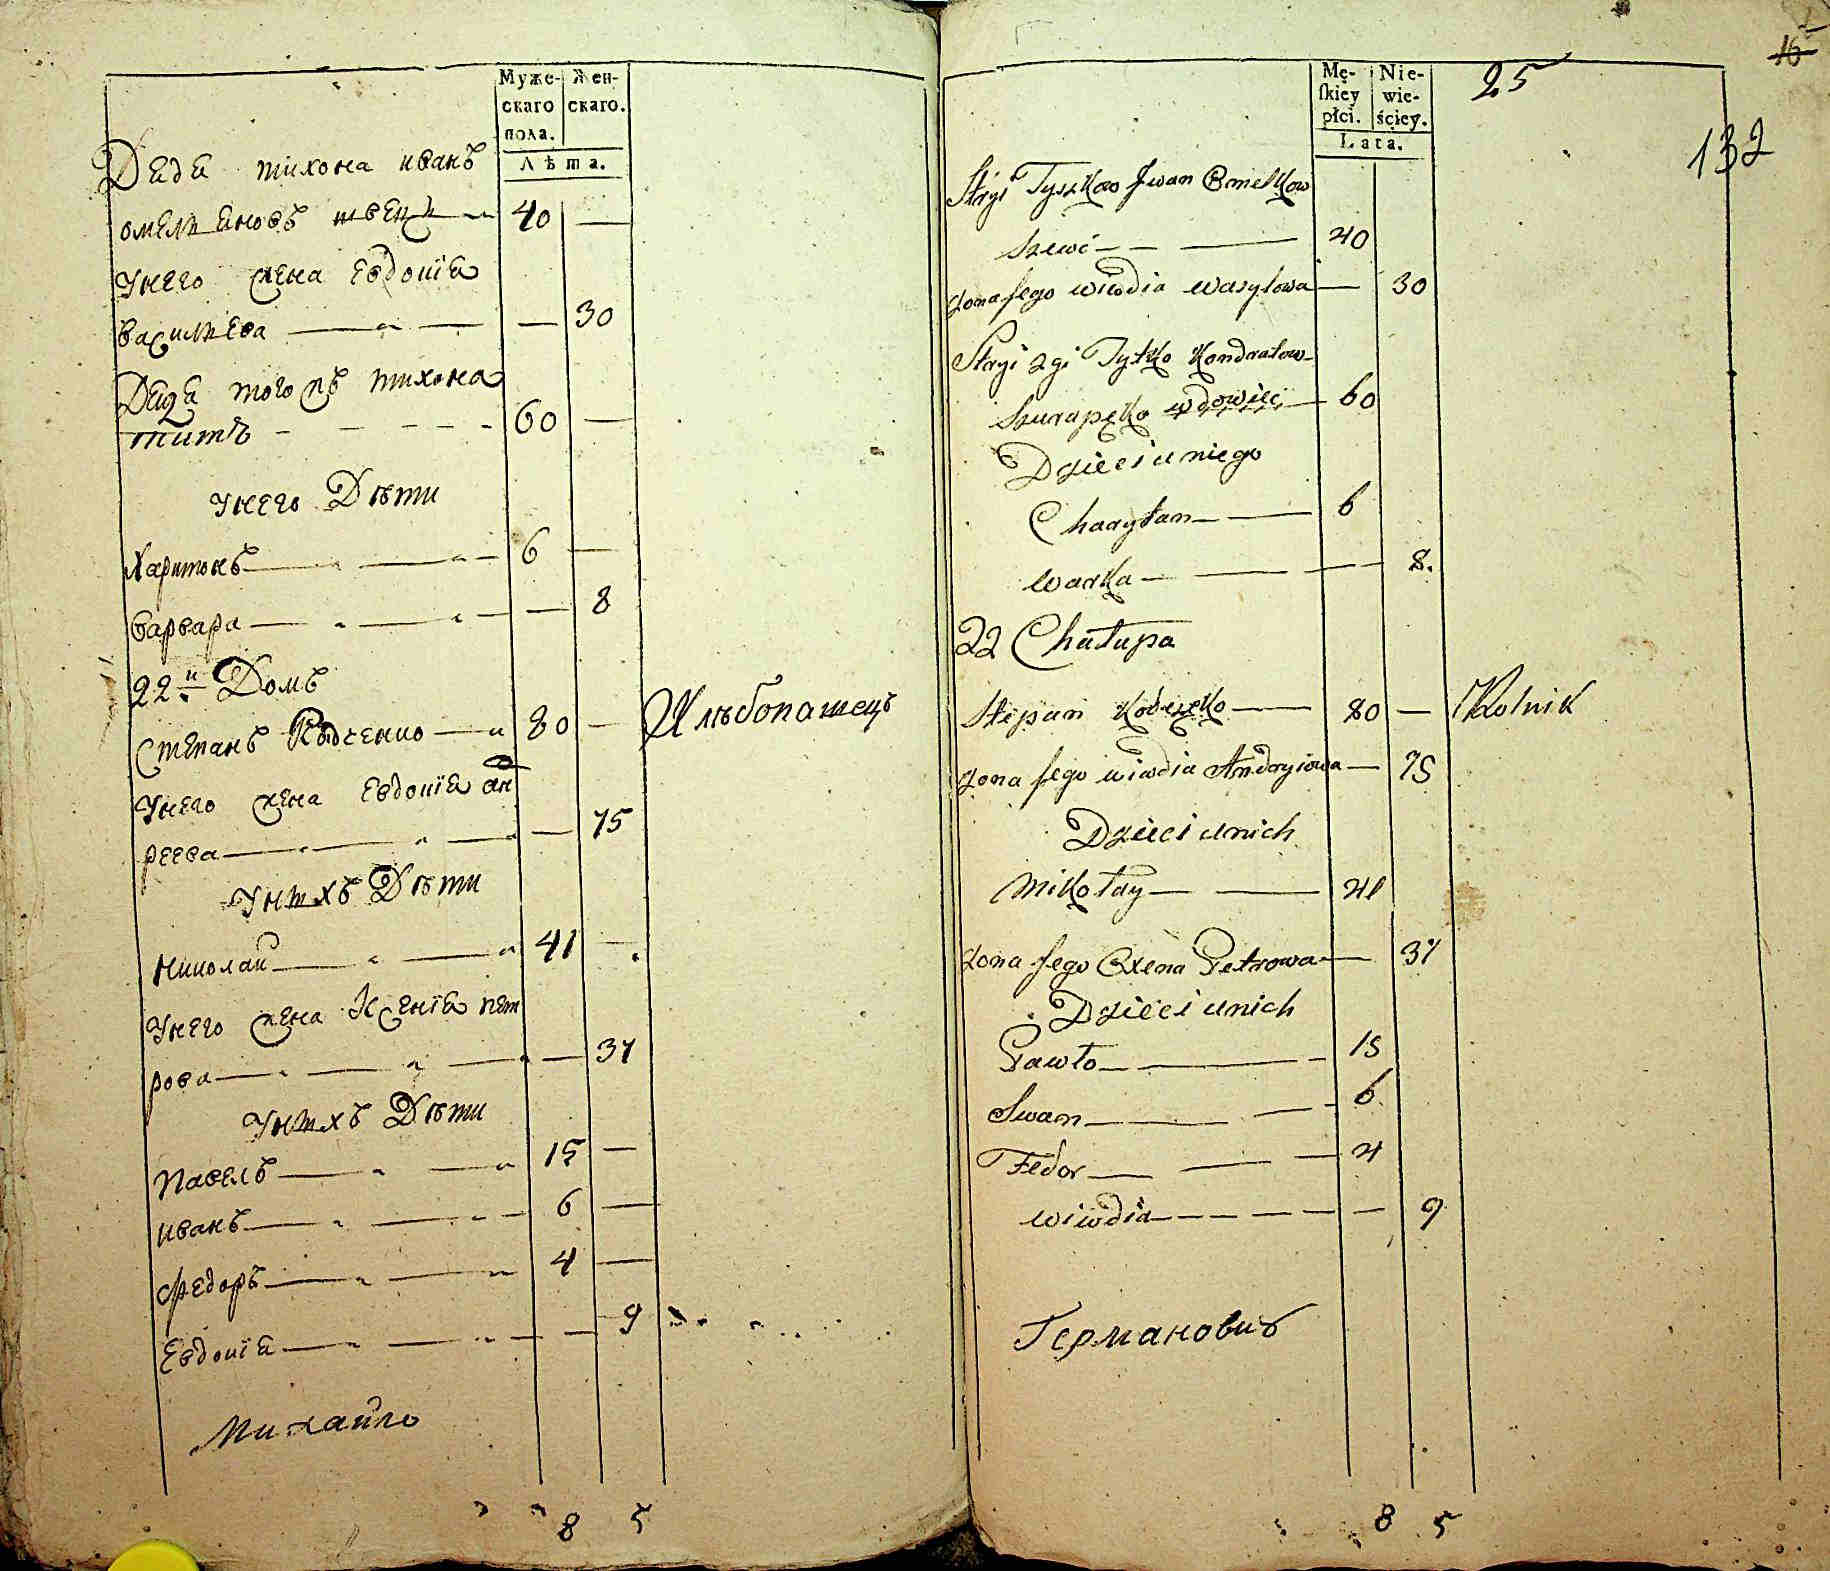 Муже-
скаго
пола.
Жен-
скаго.
Лѣта.
Дядя тихона иванъ
омельяновъ швецъ 40 —
Унего жена Евдокія
васильева — 30
Дядя того жъ тихона
титъ 60 —
Унего Дѣти
Харитонъ 6 —
варвара — 8
22й Домъ
Степанъ 80 — Хлѣбопашецъ
Унего жена Евдокія ан
реева — 75
Унихъ Дѣти
Николай 41 —
Унего жена Ксенія пет
рова — 37
Унихъ Дѣти
Павелъ 15 —
иванъ 6 —
федоръ 4 —
Евдокія — 9
Михайло
8 5
16
25
132
Mę-
ſkiey
płci.
Nie-
wie-
ściey.
Lata.
Stryi Iwan Omelkow
szewc 40
zona Jego wiwdia wasylowa — 30
Stryi 2gi Tytko Kondratow
wdowiec 60
Dzieci u niego
Charytan 6
warka — 8.
22 Chałupa
Stepan 80 — Rolnik
zona Jego wiwdia Andryiowa — 75
Dzieci unich
Mikołay 41
zona Jego Oxena Petrowa — 37
Dzieci unich
Pawło 15
Iwan 6
Fedor 4
wiwdia — 9
Германовичъ
8 5